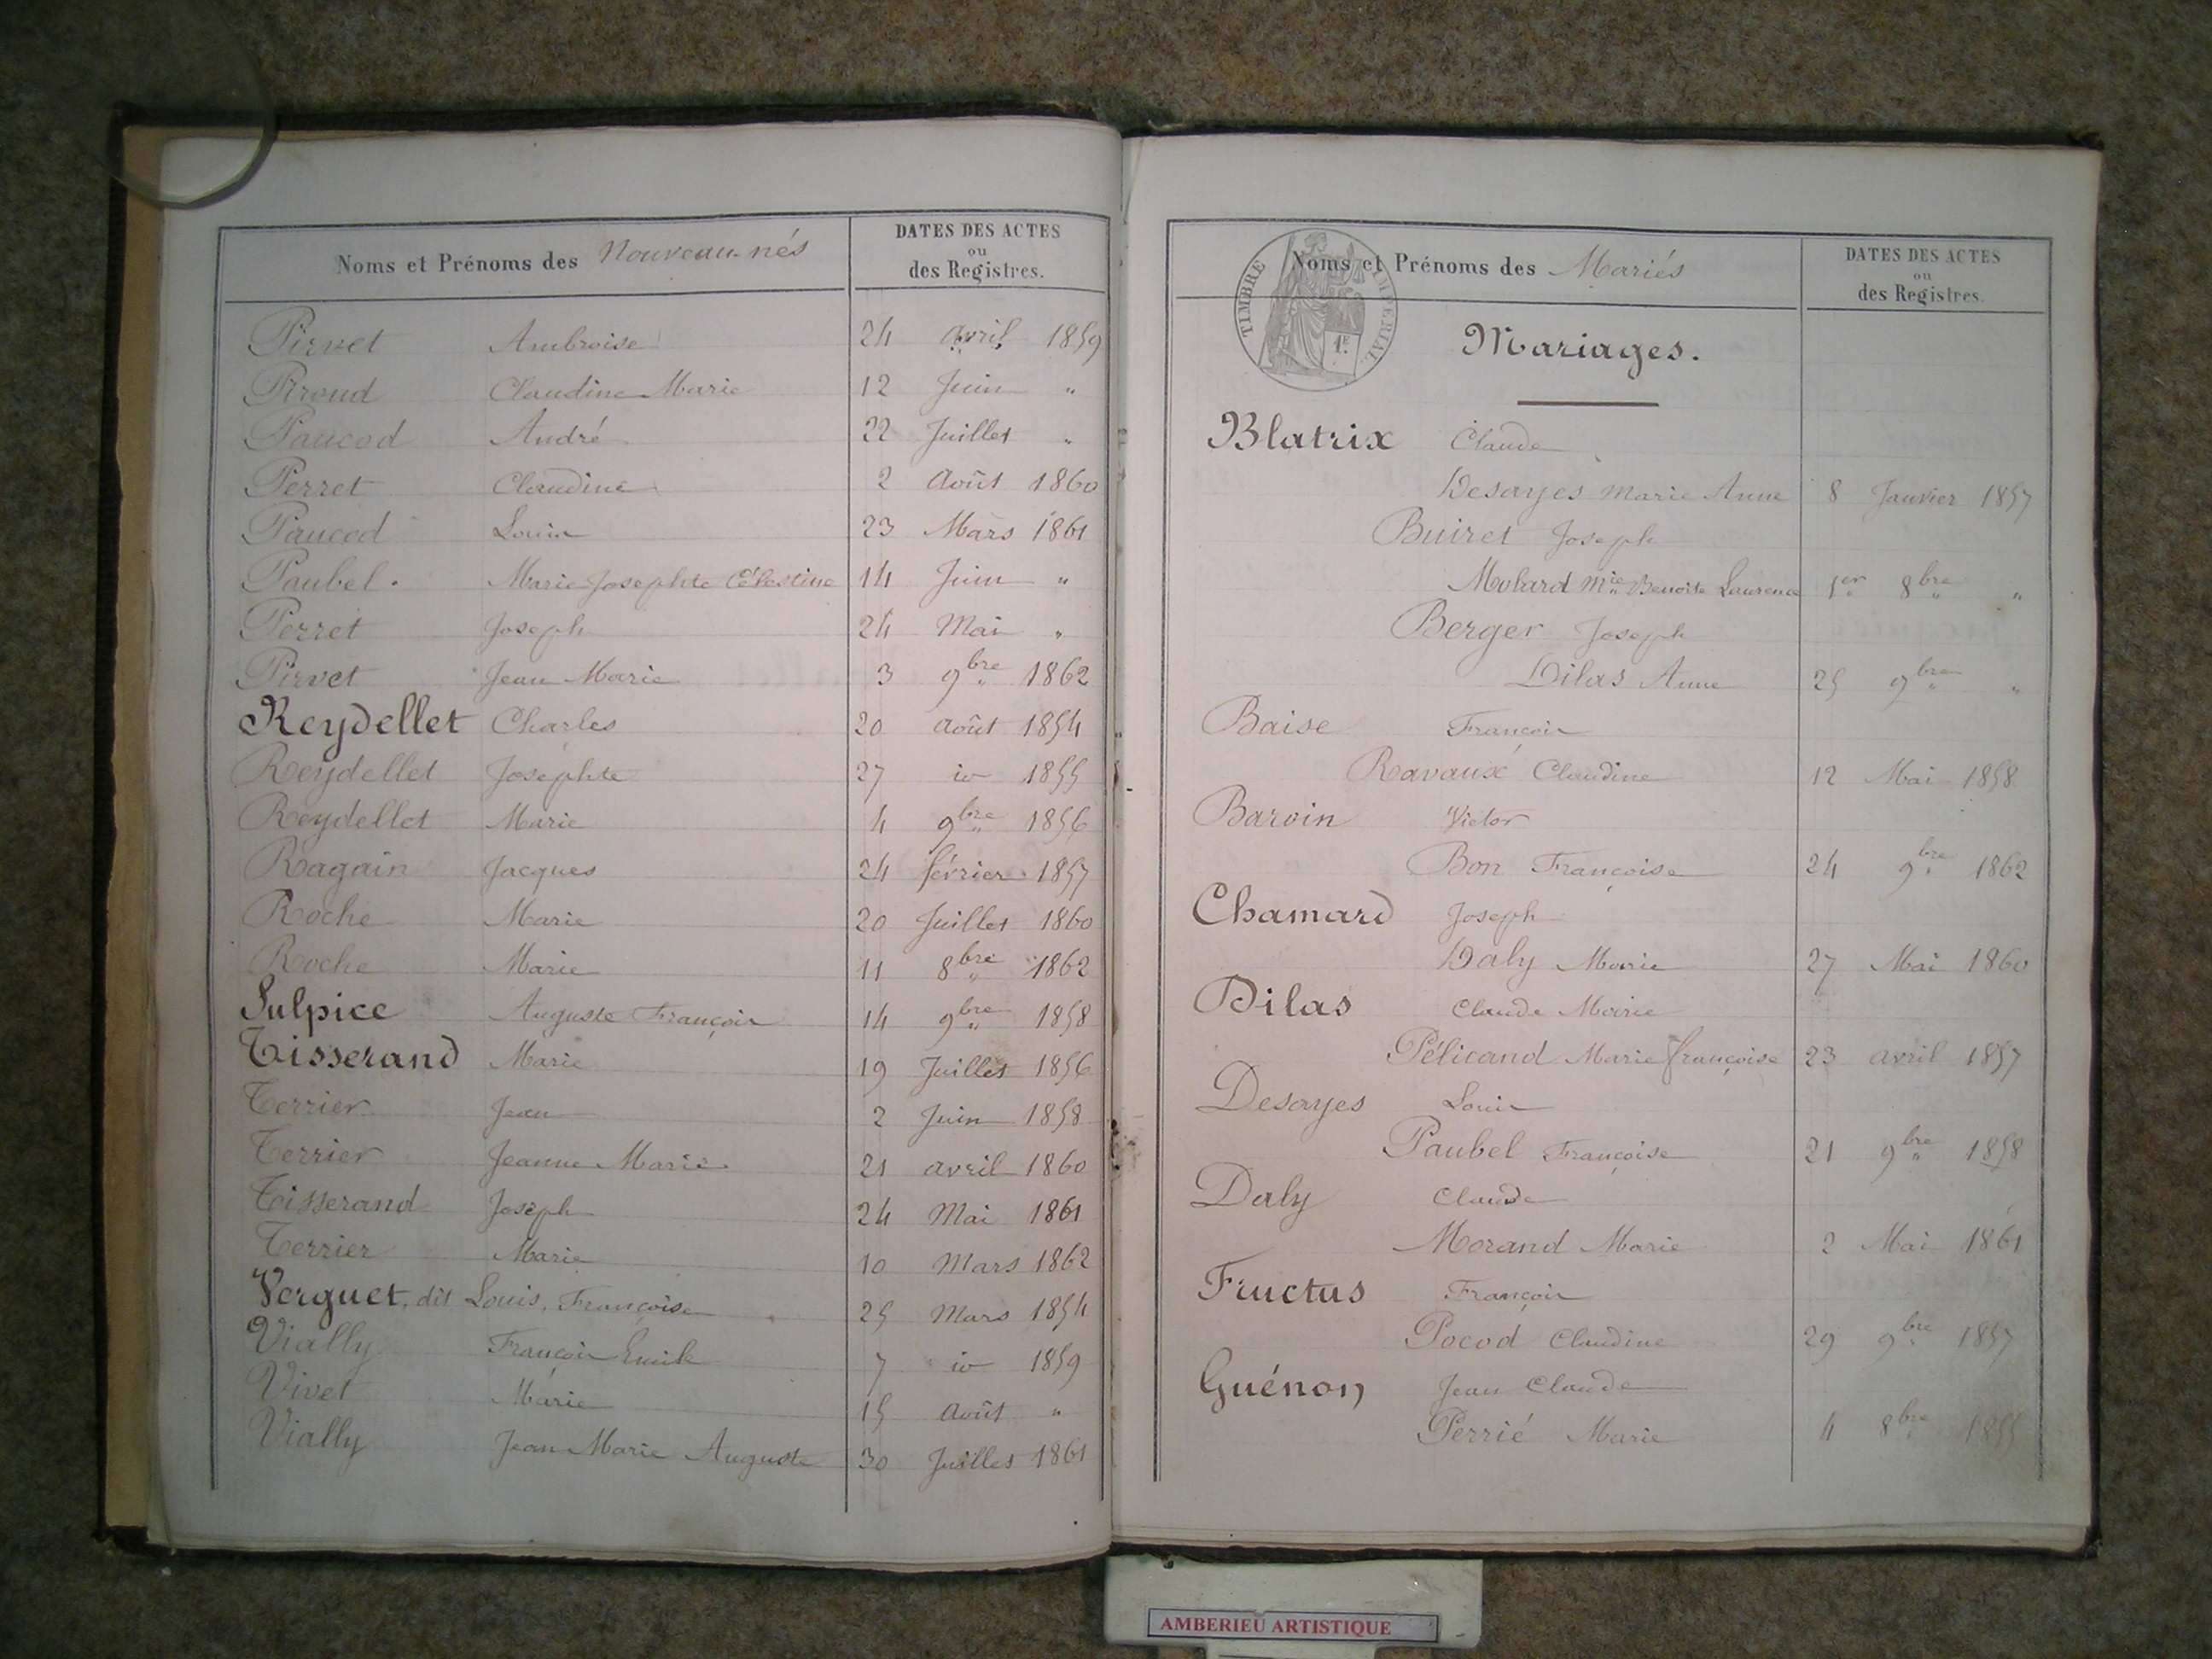 Noms et Prénoms des Nouveau-nés
DATES DES ACTES
ou
des Registres.
Pirvet Ambroise 24 avril 1859
Piroud Claudine Marie 12 Juin "
Paucod André 22 Juillet "
Perret Claudine 2 Août 1860
Paucod Louis 23 Mars 1861
Paubel. Marie Josephte Célestine 14 Juin "
Perret Joseph 24 Mai "
Pirvet Jean Marie 3 9bre 1862
Reydellet Charles 20 août 1854
Reydellet Josephte 27 io 1855
Reydellet Marie 4 9bre 1856
Ragain Jacques 24 février 1857
Roche Marie 20 Juillet 1860
Roche Marie 11 8bre 1862
Sulpice Auguste François 14 9bre 1858
Tisserand Marie 19 Juillet 1856
Terrier Jean 2 Juin 1858
Terrier Jeanne Marie 21 avril 1860
Tisserand Joseph 24 Mai 1861
Terrier Marie 10 Mars 1862
Verguet, dit Louis, Françoise 25 Mars 1854
Vially François Emile 7 io 1859
Vivet Marie 15 Août "
Vially Jean Marie Auguste 30 Juillet 1861
Noms et Prénoms des Mariés
DATES DES ACTES
ou
des Registres.
TIMBRE IMPERIAL
1E.
Mariages.
Blatrix Claude
Desayes Marie Anne 8 Janvier 1857
Buiret Joseph
Molard Mie Benoite Laurence 1er 8bre "
Berger Joseph
Dilas Anne 25 9bre "
Baise François
Ravaux Claudine 12 Mai 1858
Barvin Victor
Bon Françoise 24 9bre 1862
Chamard Joseph
Daly Marie 27 Mai 1860
Dilas Claude Marie
Pélicand Marie françoise 23 avril 1857
Desayes Louis
Paubel Françoise 21 9bre 1858
Daly Claude
Morand Marie 2 Mai 1861
Fructus François
Pocod Claudine 29 9bre 1857
Guénon Jean Claude
Perrié Marie 4 8bre 1855
AMBERIEU ARTISTIQUE